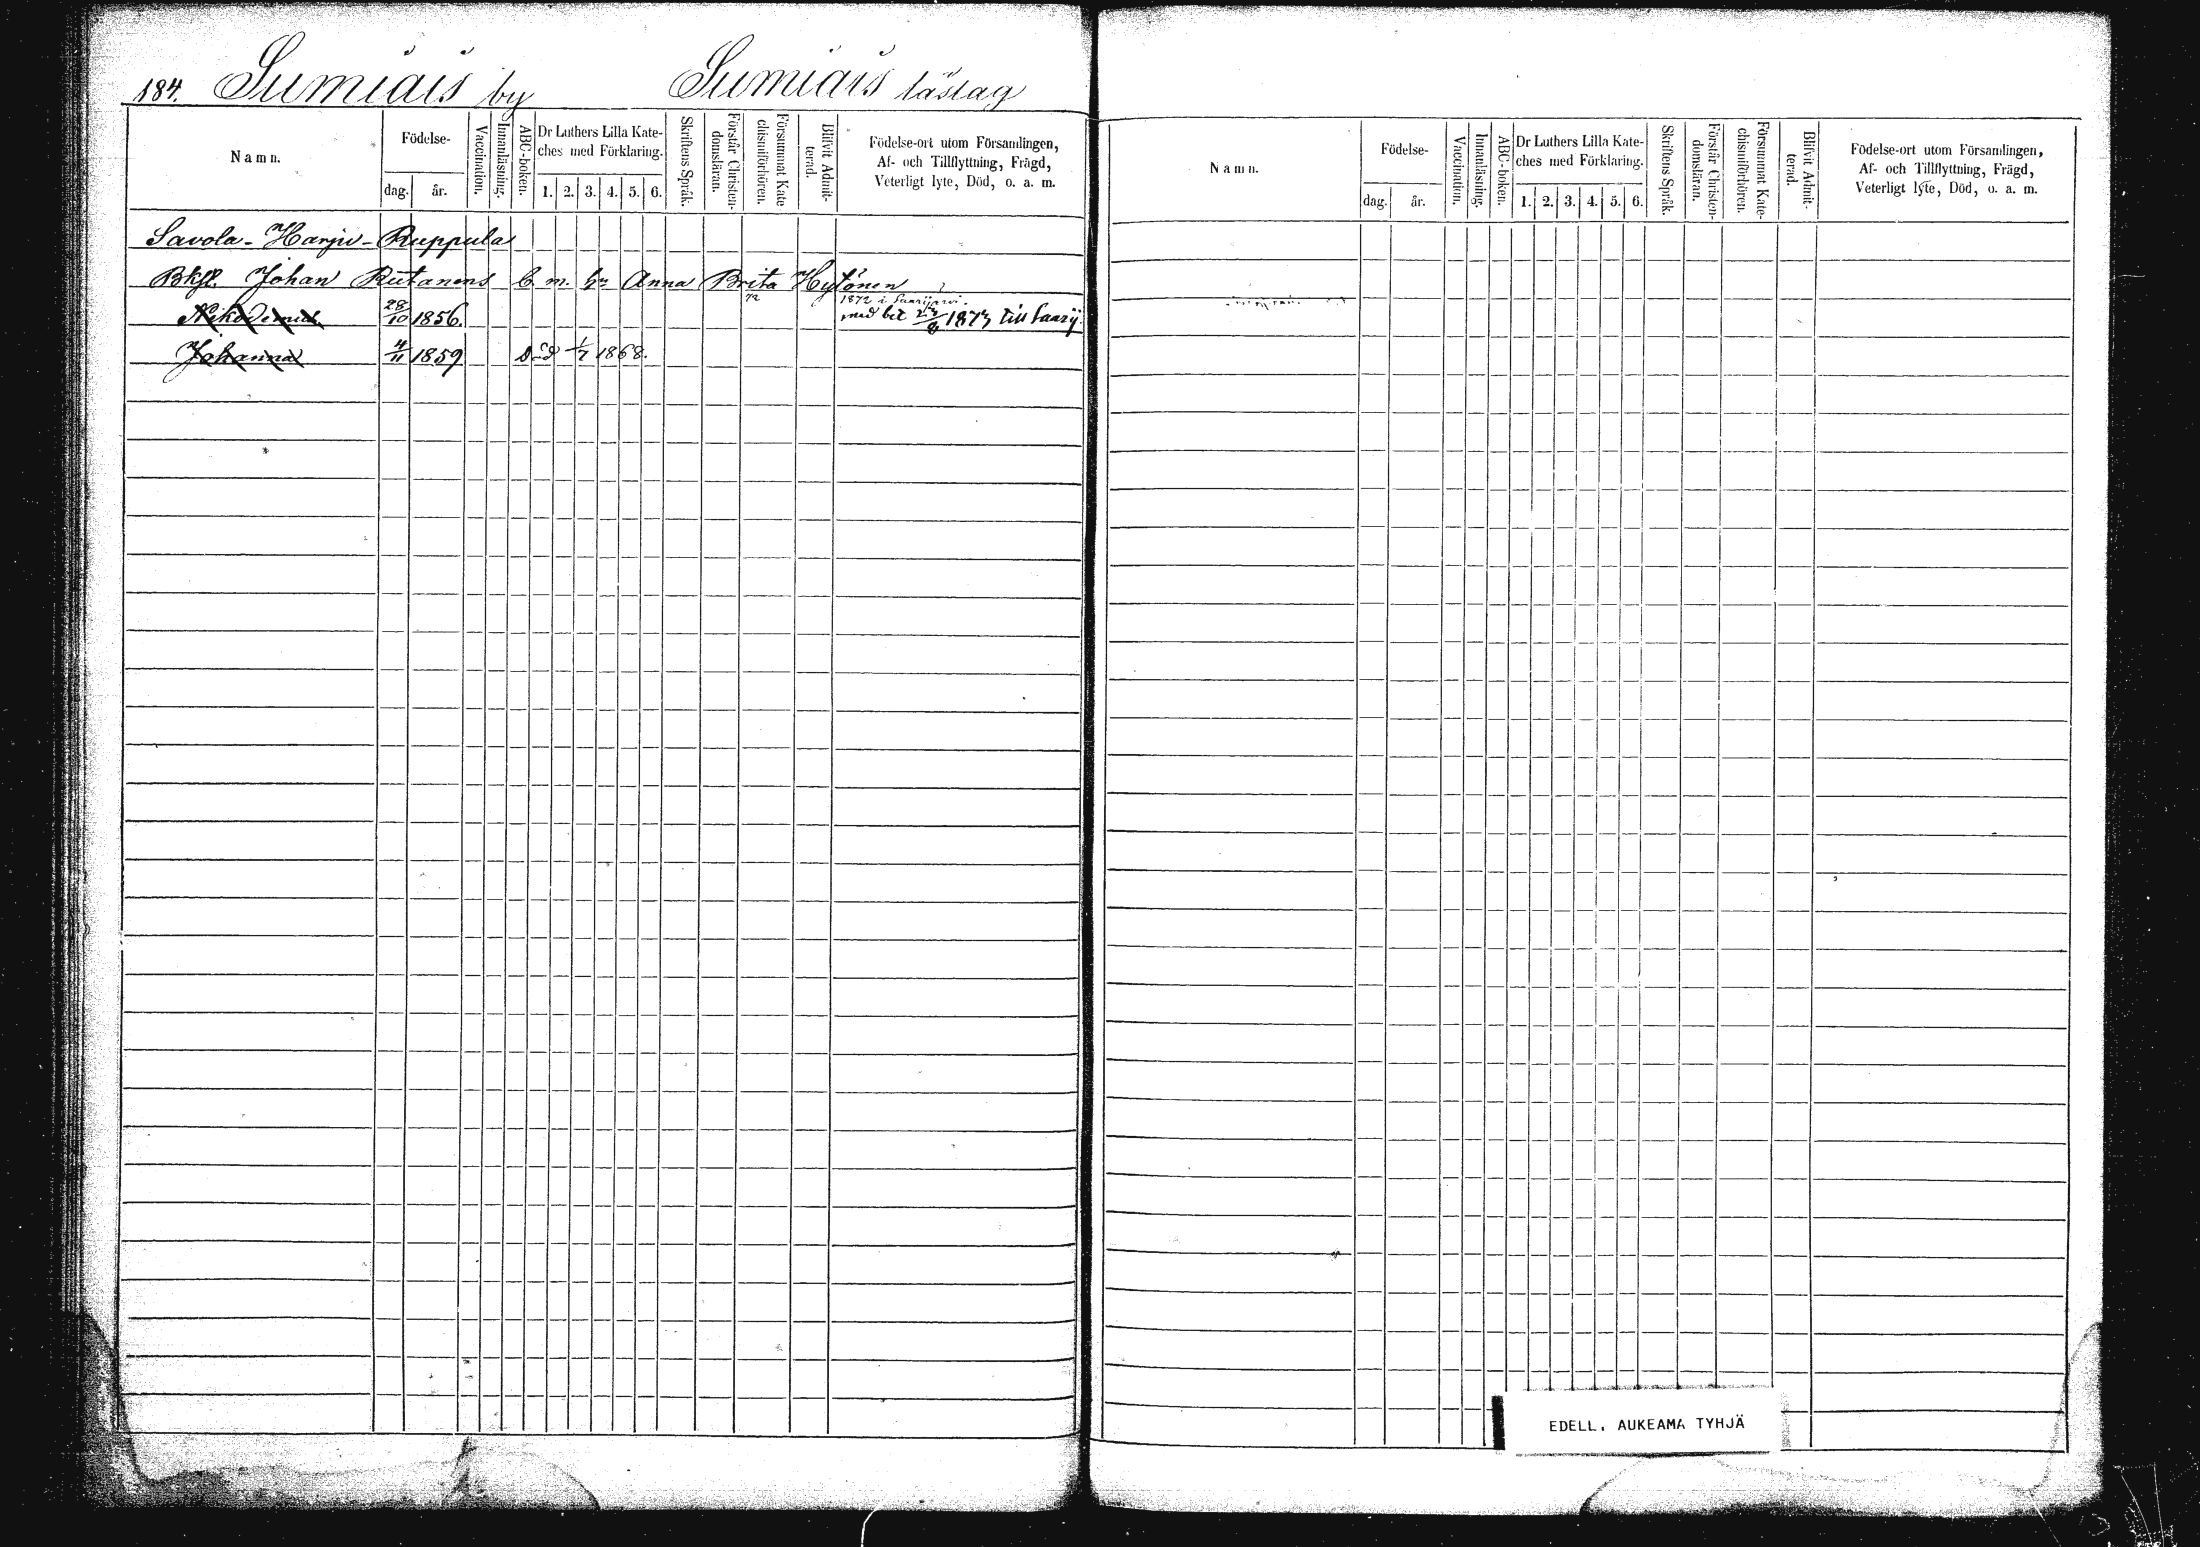 184. Sumiais by Sumiais läslag
Namn.
Födelse-
dag.
år.
Vaccination.
Innanläsning.
ABC-boken.
Dr Luthers Lilla Kate-
ches med Förklaring.
1. 2. 3. 4. 5. 6.
Skriftens Språk.
Förstår Christen-
domsläran.
Försummat Kate
chismiförhören.
Blifvit Admit-
terad.
Födelse-ort utom Församlingen,
Af- och Tillflyttning, Frägd,
Veterligt lyte, Död, o. a. m.
Savola - Harju - Ruppula
Johan Rutanens b. m. Anna Brita Hytönen
1872 i Saarijärvi.
Nikodemus 28/10 1856. med bet 23/8 1873 till Saarij
Johanna 4/11 1859 Död 1/7 1868.
Namn.
Födelse-
dag.
år.
Vaccination.
Innanläsning.
ABC-boken.
Dr Luthers Lilla Kate-
ches med Förklaring.
1. 2. 3. 4. 5. 6.
Skriftens Språk.
Förstår Christen-
domsläran.
Försummat Kate-
chismiförhören.
Blifvit Admit-
terad.
Födelse-ort utom Församlingen,
Af- och Tillflyttning, Frägd,
Veterligt lyte, Död, o. a. m.
EDELL. AUKEAMA TYHJÄ